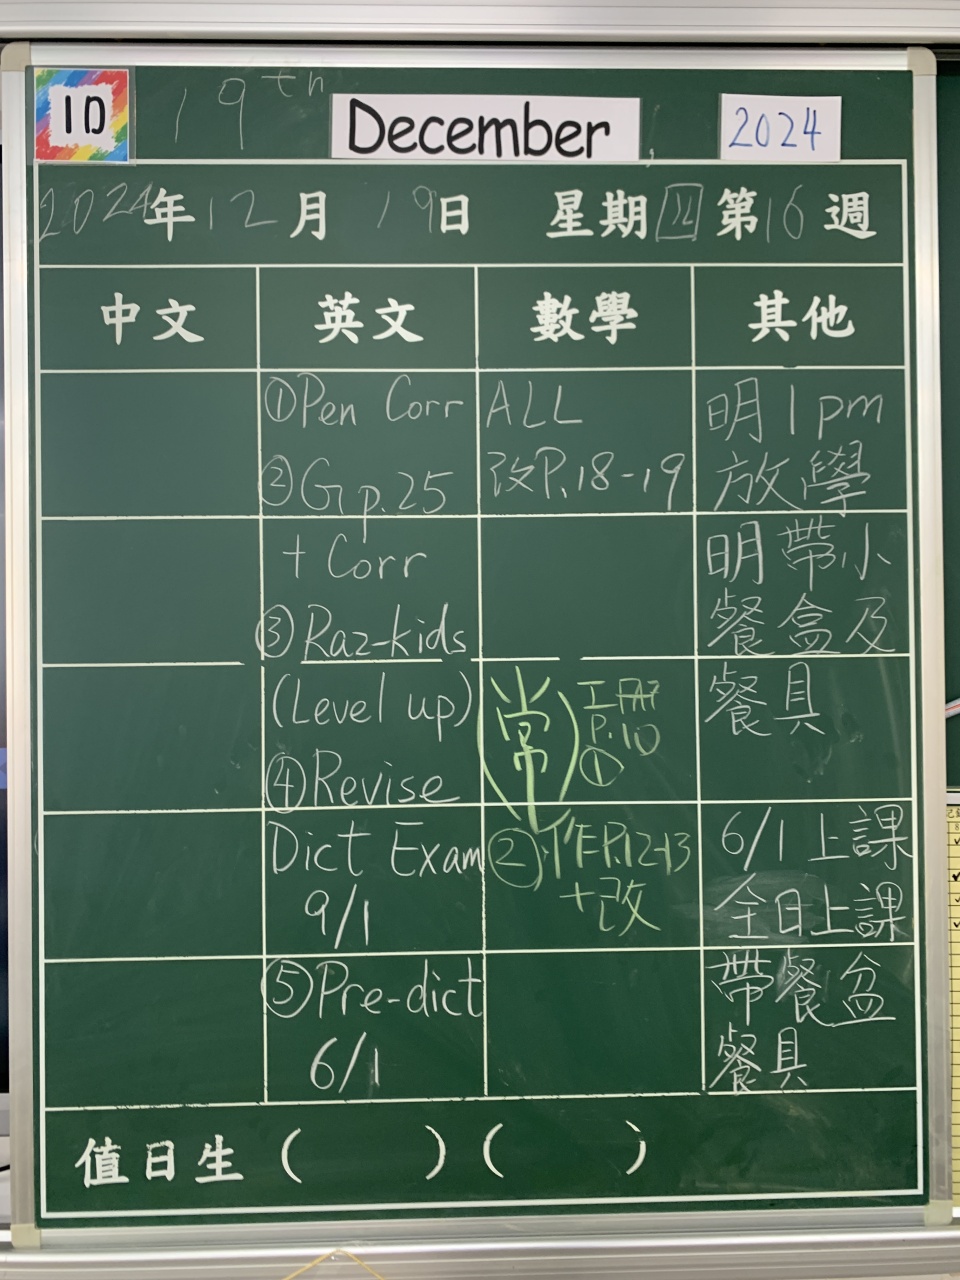 1D
19th December 2024
2024年12月19日 星期四 第16週
中文 英文 數學 其他
①Pen Corr
②G p.25
+ Corr
③Raz-kids
(Level up)
④Revise
Dict Exam
9/1
⑤Pre-dict
6/1
ALL
改P.18-19
(常)
P.10
①
②作P.12-13
+改
明1pm
放學
明帶小
餐盒及
餐具
6/1上課
全日上課
帶餐盆
餐具
值日生 ( ) ( )